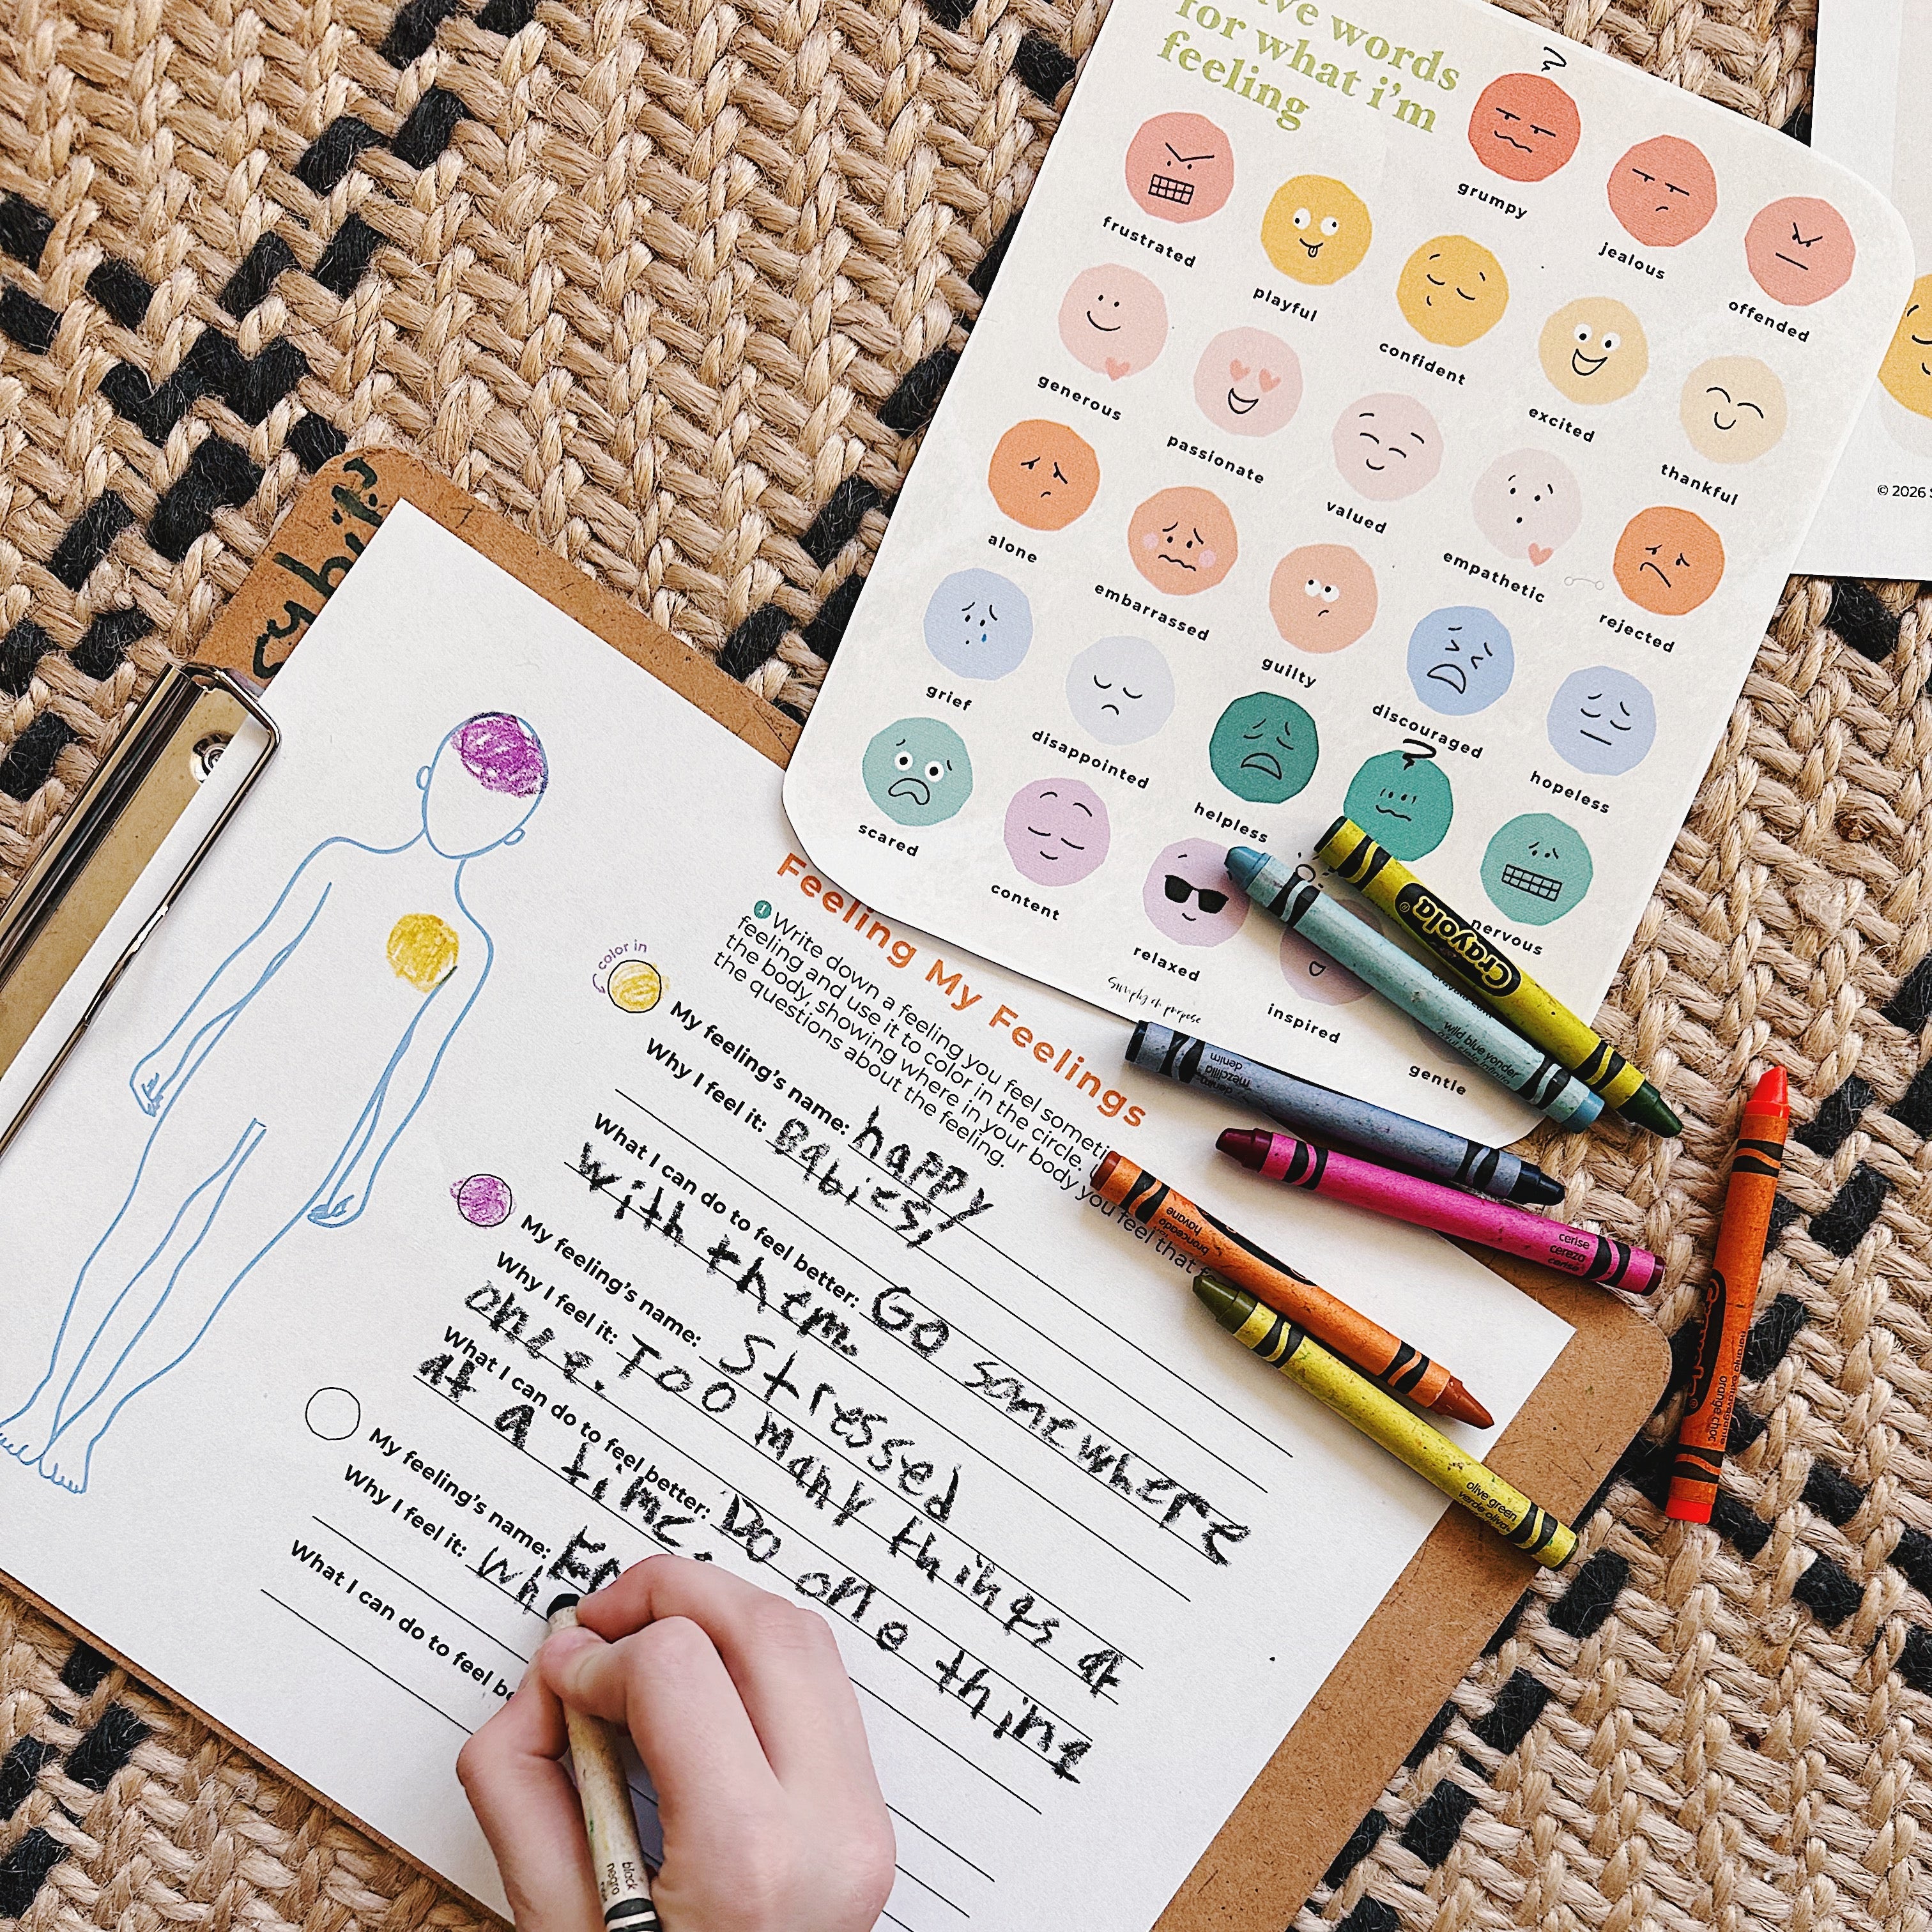 words
for what i'm
feeling
grumpy
jealous
offended
frustrated
playful
confident
excited
thankful
generous
passionate
valued
empathetic
rejected
alone
embarrassed
guilty
discouraged
hopeless
grief
disappointed
helpless
nervous
scared
content
relaxed
inspired
gentle
Simply on purpose
© 2026
Feeling My Feelings
1 Write down a feeling you feel
feeling and use it to color in the circle.
the body, showing where in your body you feel that
the questions about the feeling.
color in
My feeling's name: happy
Why I feel it: Babies!
What I can do to feel better: Go somewhere
with them.
My feeling's name: Stressed
Why I feel it: Too many things at
once.
What I can do to feel better: Do one thing
at a time.
My feeling's name:
Why I feel it:
What I can do to feel
Crayola
wild blue yonder
denim
mezclilla
cerise
cereza
cerise
bronceado
havane
olive green
verde oliva
orange
black
negro